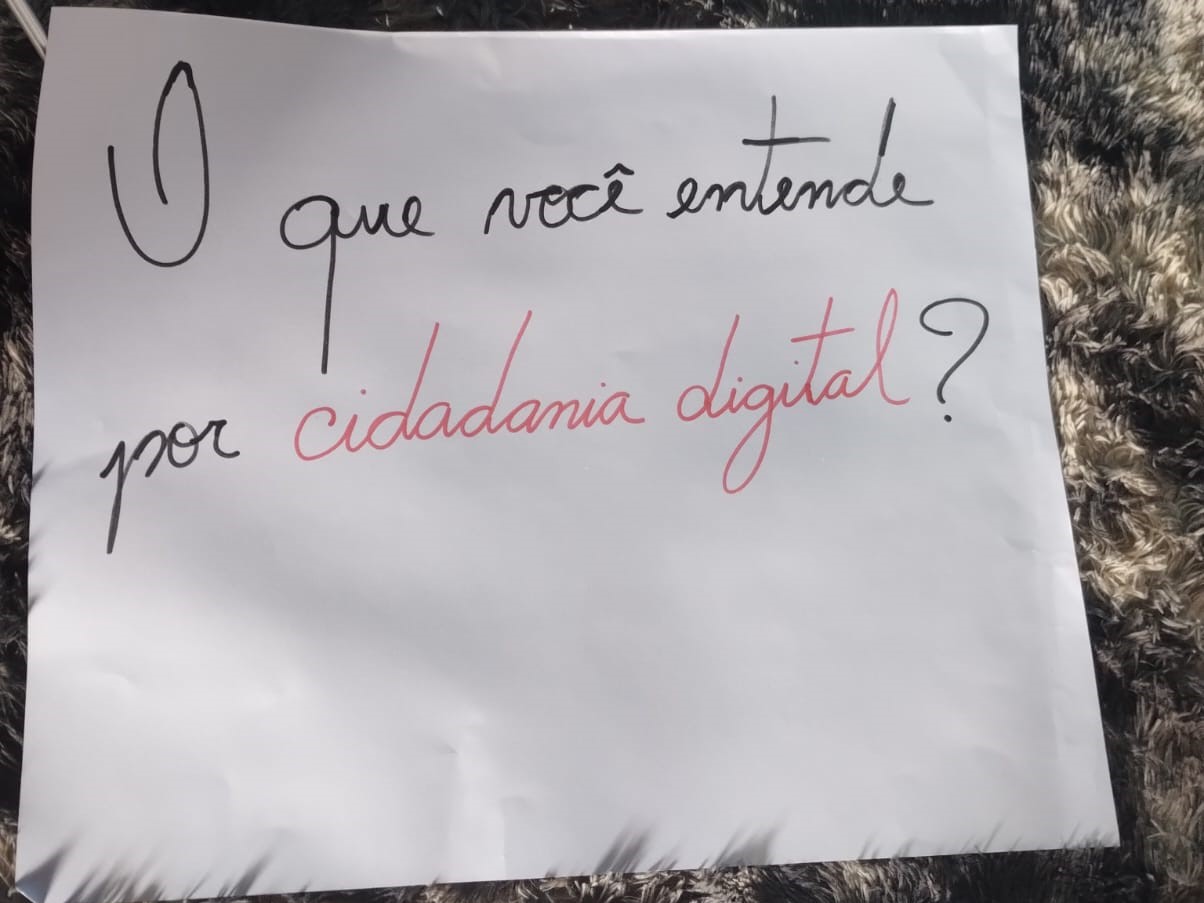 O que você entende
por cidadania digital?